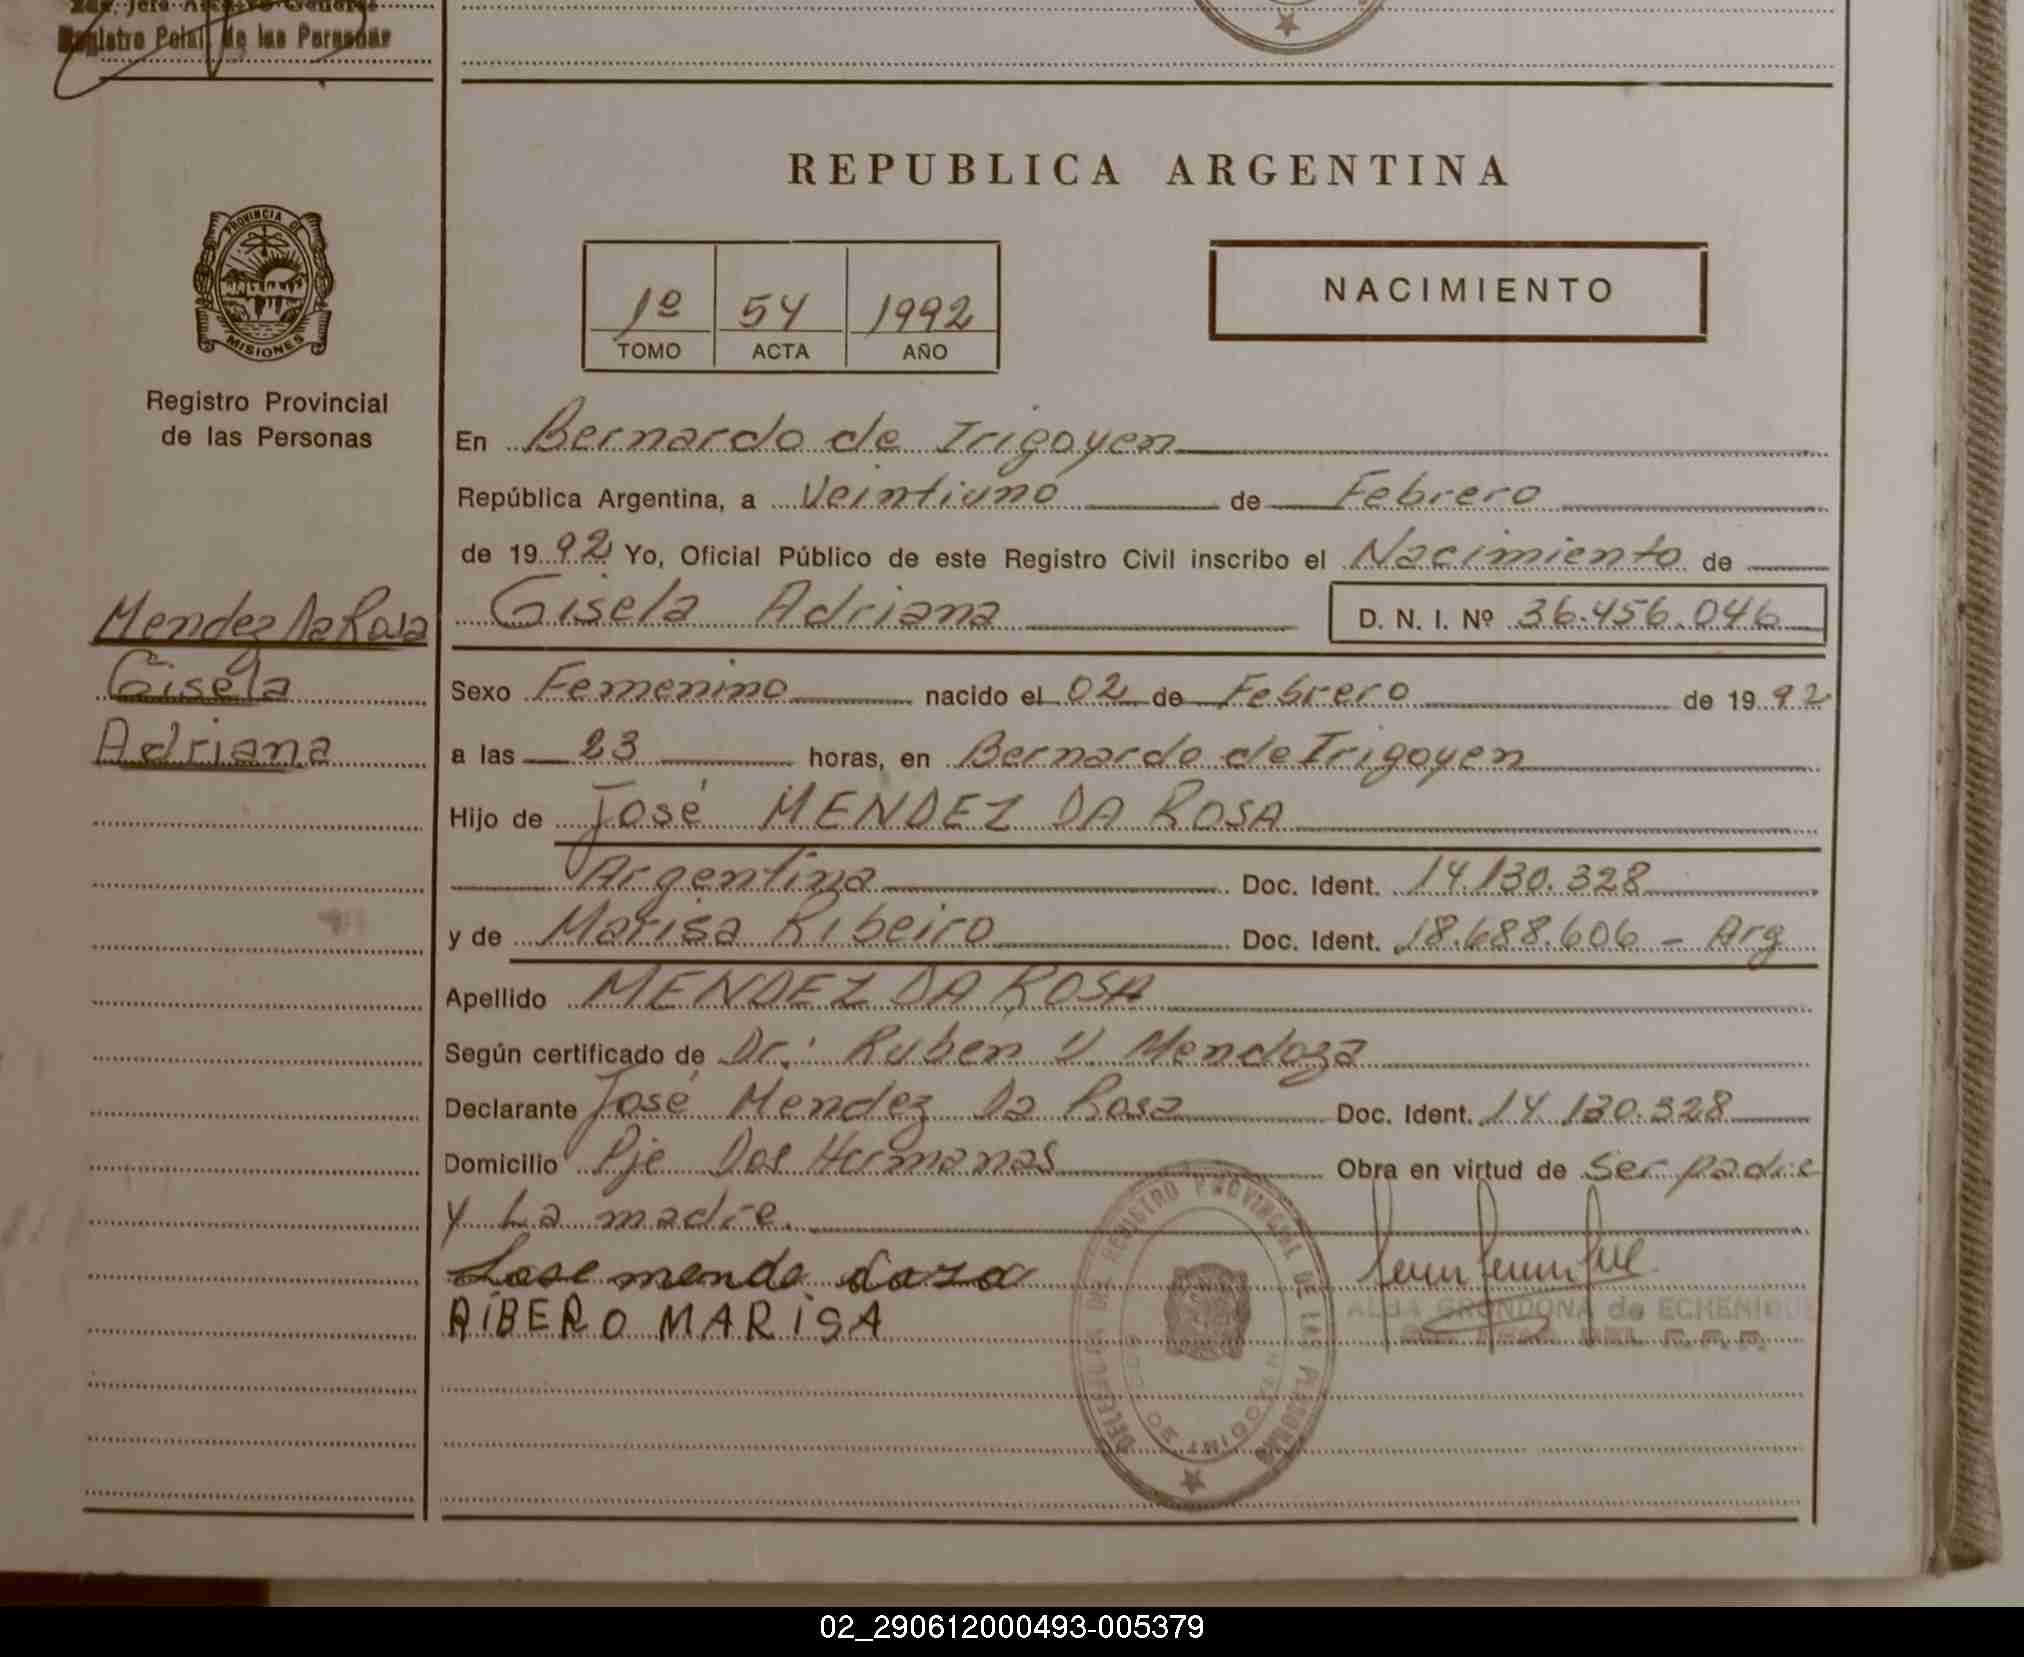 Registro Pcial. de las Personas
REPUBLICA ARGENTINA
PROVINCIA DE
MISIONES
Registro Provincial
de las Personas
1º 54 1992
TOMO ACTA AÑO
NACIMIENTO
En Bernardo de Irigoyen
República Argentina, a Veintiuno de Febrero
de 1992 Yo, Oficial Público de este Registro Civil inscribo el Nacimiento de
Mendez Da Rosa
Gisela
Adriana
Gisela Adriana D. N. I. Nº 36.456.046
Sexo Femenino nacido el 02 de Febrero de 1992
a las 23 horas, en Bernardo de Irigoyen
Hijo de José MENDEZ DA ROSA
Argentina Doc. Ident. 14.130.328
y de Marisa Ribeiro Doc. Ident. 18.688.606 - Arg
Apellido MENDEZ DA ROSA
Según certificado de Dr.: Ruben V. Mendoza
Declarante José Mendez Da Rosa Doc. Ident. 14.130.328
Domicilio Pje Dos Hermanas Obra en virtud de Ser padre
y La madre.
Jose mende
RIBERO MARISA
ALBA GRONDONA de ECHENIQUE
DEL R.P.P.
REGISTRO PROVINCIAL DE LAS PERSONAS
DE IRIGOYEN
02_290612000493-005379